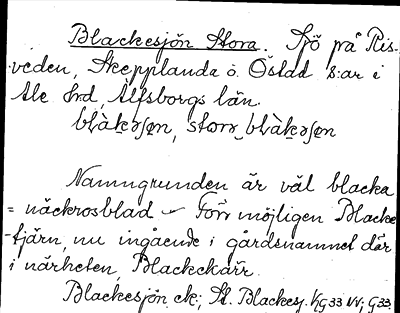 Blackesjön Stora. Sjö på Ris-
veden, Skepplanda o. Östad s:ar i
Ale hrd, Älfsborgs län.
Namngrunden är väl blacka
= näckrosblad – Förr möjligen Blacke-
tjärn, nu ingående i gårdsnamnet där
i närheten, Blackekärr.
Blackesjön ek; St. Blackesj. KG33 NV; G33.